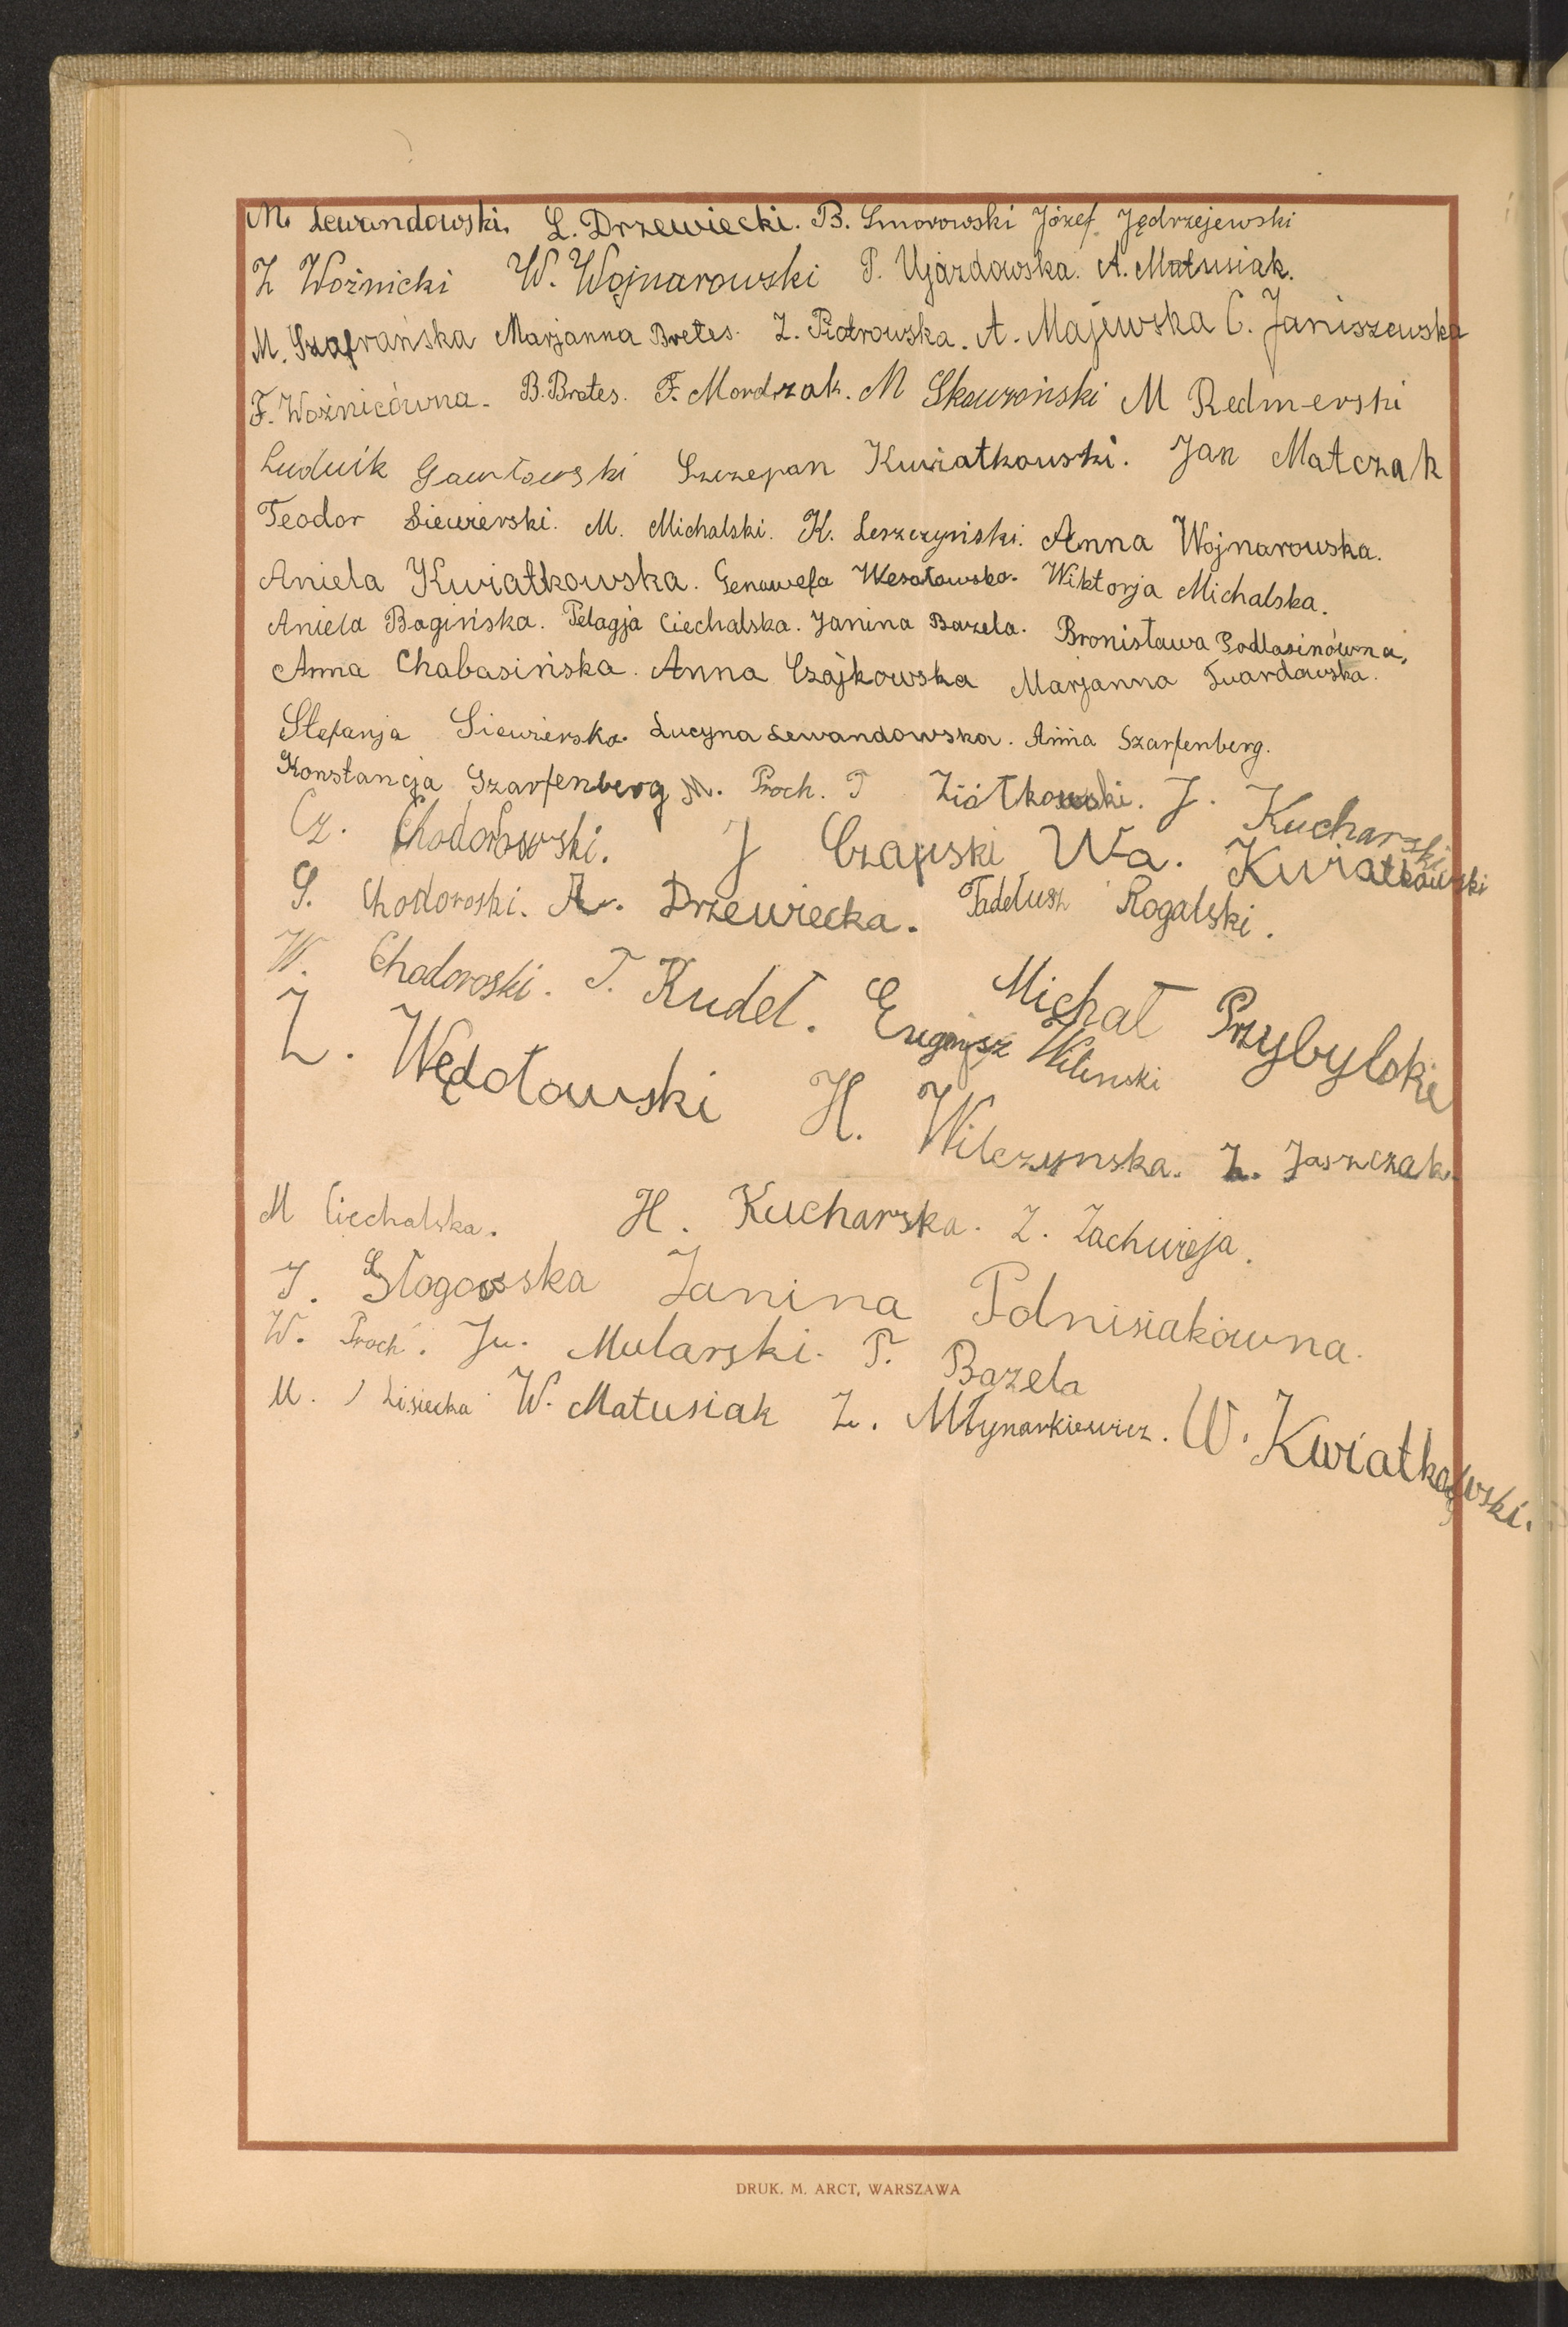 M. Lewandowski. L. Drzewiecki. B. Smorowski Józef Jędrzejewski
Z Woźnicki W. Wojnarowski P. Ujazdowska. A. Matusiak.
M. Szafrańska Marjanna Bretes. Z. Piotrowska. A. Majewska C. Janiszewska
F. Woźnicówna. B. Bretes. F. Mordzak. M Skowroński M Redmerski
Ludwik Gawłowski Szczepan Kwiatkowski. Jan Matczak
Teodor Siewierski. M. Michalski. K. Leszczyński. Anna Wojnarowska.
Aniela Kwiatkowska. Genowefa Wesołowska. Wiktorja Michalska.
Aniela Bagińska. Pelagja Ciechalska. Janina Bazela. Bronisława Podlasinówna,
Anna Chabasińska. Anna Czajkowska Marjanna Twardowska.
Stefanja Siewierska. Lucyna Lewandowska. Anna Szarfenberg.
Konstancja Szarfenberg M. Proch. T Ziółkowski. J. Kucharski
Cz. Chodorowski. J Czapski Wa. Kwiatkowski
S. Chodoroski. A. Drzewiecka. Tadeusz Rogalski.
W. Chodoroski. T. Kudel. Eugenjusz Wilenski Michał Przybylski
Z. Wędołowski H. Wilczynska. Z. Jaszczak.
M Ciechalska. H. Kucharska. Z. Zachwieja.
J. Głogowska Janina Polnisiakówna.
W. Proch. Ju. Mularski. T. Bazela
M. Lisiecka W. Matusiak Z. Młynarkiewicz. W. Kwiatkowski.
DRUK. M. ARCT, WARSZAWA